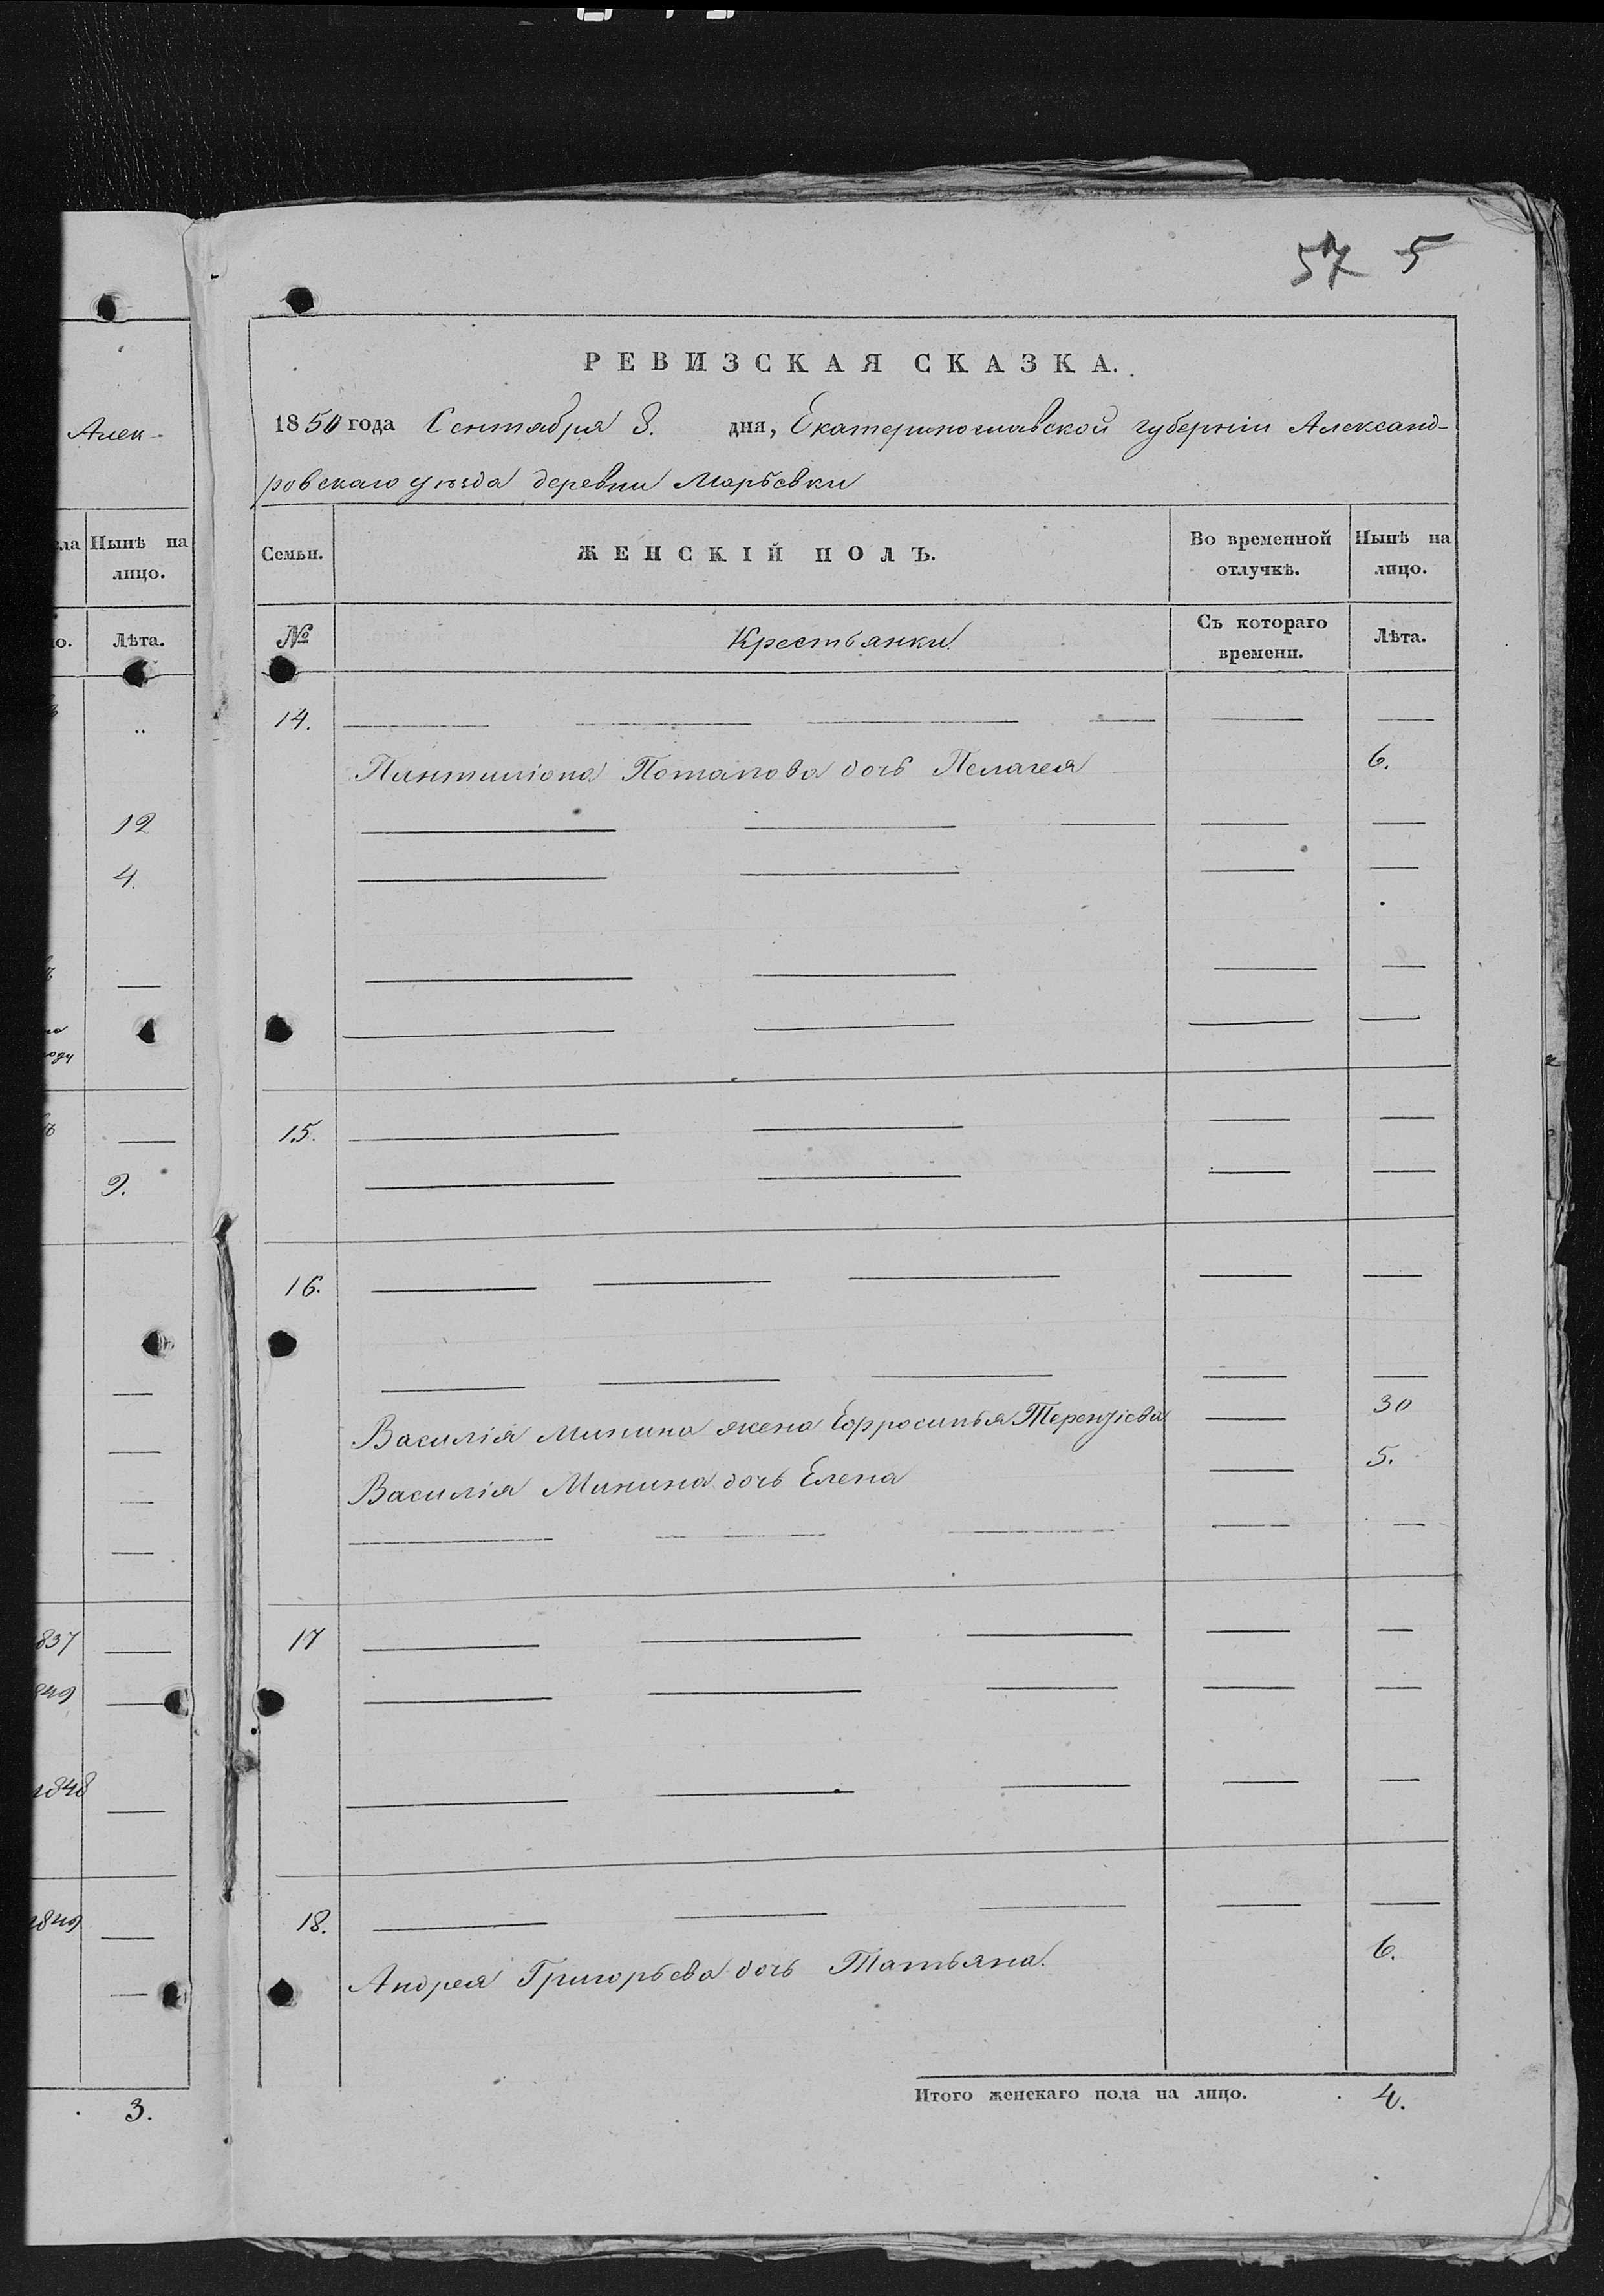 57 5
РЕВИЗСКАЯ СКАЗКА.
1850 года Сентября 8. дня, Екатеринославской губерніи Александ-
ровскаго уѣзда деревни Марьевки
Семьи. ЖЕНСКІЙ ПОЛЪ. Во временной отлучкѣ. Нынѣ на лицо.
№ Крестьянки Съ котораго времени. Лѣта.
14.
Пантилiона Потапова дочь Пелагея 6.
15.
16.
Василія Минина жена Ефросинья Терентіева 30
Василія Минина дочь Елена 5.
17
18.
Андрея Григорьева дочь Татьяна. 6.
Итого женскаго пола на лицо. 4.
Алек-
Нынѣ на
лицо.
Лѣта.
12
4.
9.
837
849
1848
1849
3.